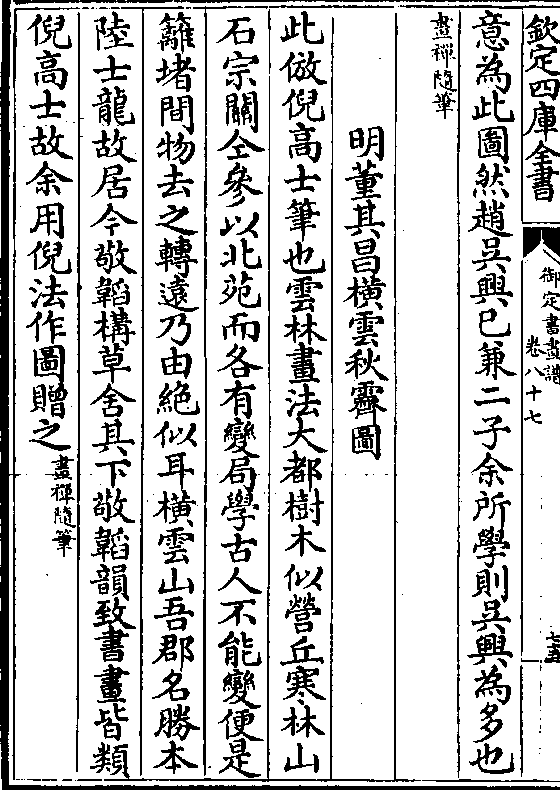 欽定四庫全書
御定書畫譜
卷八十七
意為此圖然趙吳興已兼二子余所學則吳興為多也
畫禪隨筆
明董其昌橫雲秋霽圖
此倣倪高士筆也雲林畫法大都樹木似營丘寒林山
石宗關仝參以北苑而各有變局學古人不能變便是
籬堵間物去之轉遠乃由絶似耳橫雲山吾郡名勝本
陸士龍故居今敬韜構草舍其下敬韜韻致書畫皆類
倪高士故余用倪法作圖贈之畫禪隨筆